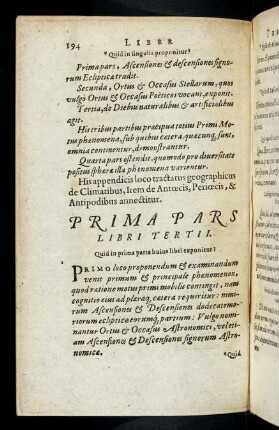 194 LIBER
*Quid in singulis proponitur?
Prima pars, Ascensiones & descensiones signo-
rum Eclipticæ tradit.
Secunda, Ortus & Occasus Stellarum, quos
vulgò Ortus & Occasus Poëticos vocant, exponit.
Tertia, de Diebus naturalibus & artificialibus
agit.
His tribus partibus præcipua totius Primi Mo-
tus phænomena, sub quibus cætera quæcunq; sunt,
omnia continentur, demonstrantur.
Quarta pars ostendit, quomodo pro diversitate
positus sphæræ illa phænomena varientur.
His appendicis loco tractatus geographicus
de Climatibus, Item de Antœcis, Periœcis, &
Antipodibus annectitur.
PRIMA PARS
LIBRI TERTII.
Quid in prima parte huius libri exponitur?
PRIMO loco proponendum & examinandum
venit primum & principale phænomenon,
quod ratione motus primi mobilis contingit, nam
cognitio eius ad pleraq; cætera requiritur: nimi-
rum Ascensiones & Descensiones dodecatemo-
riorum eclipticæ eorumq; partium: Vulgo nomi-
nantur Ortus & Occasus Astronomici, vel eti-
am Ascensiones & Descensiones signorum Astro-
nomicæ.
*Quid